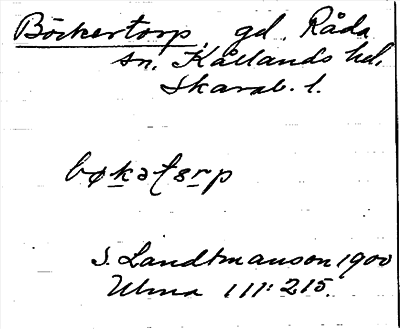 Böckertorp, gd, Råda
sn, Kållands hd,
Skarab. l.
bøkatsrp
S. Landtmanson 1900
Ulma 111: 215.